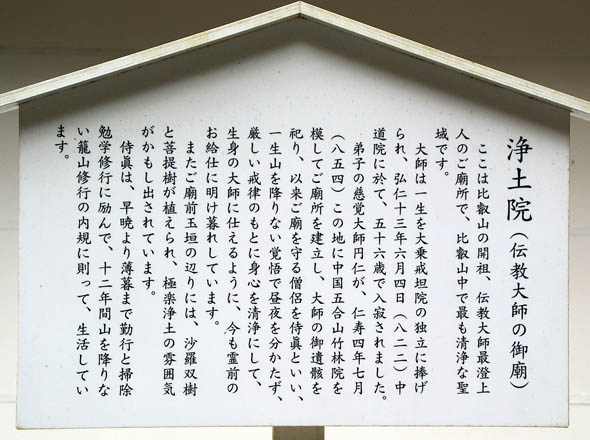 浄土院（伝教大師の御廟）
ここは比叡山の開祖、伝教大師最澄上
人のご廟所で、比叡山中で最も清浄な聖
域です。
大師は一生を大乗戒坦院の独立に捧げ
られ、弘仁十三年六月四日（八二二）中
道院に於て、五十六歳で入寂されました。
弟子の慈覚大師円仁が、仁寿四年七月
（八五四）この地に中国五合山竹林院を
模してご廟所を建立し、大師の御遺骸を
祀り、以来ご廟を守る僧侶を侍眞といい、
一生山を降りない覚悟で昼夜を分かたず、
厳しい戒律のもとに身心を清浄にして、
生身の大師に仕えるように、今も霊前の
お給仕に明け暮れしています。
またご廟前玉垣の辺りには、沙羅双樹
と菩提樹が植えられ、極楽浄土の雰囲気
がかもし出されています。
侍眞は、早暁より薄暮まで勤行と掃除
勉学修行に励んで、十二年間山を降りな
い籠山修行の内規に則って、生活してい
ます。